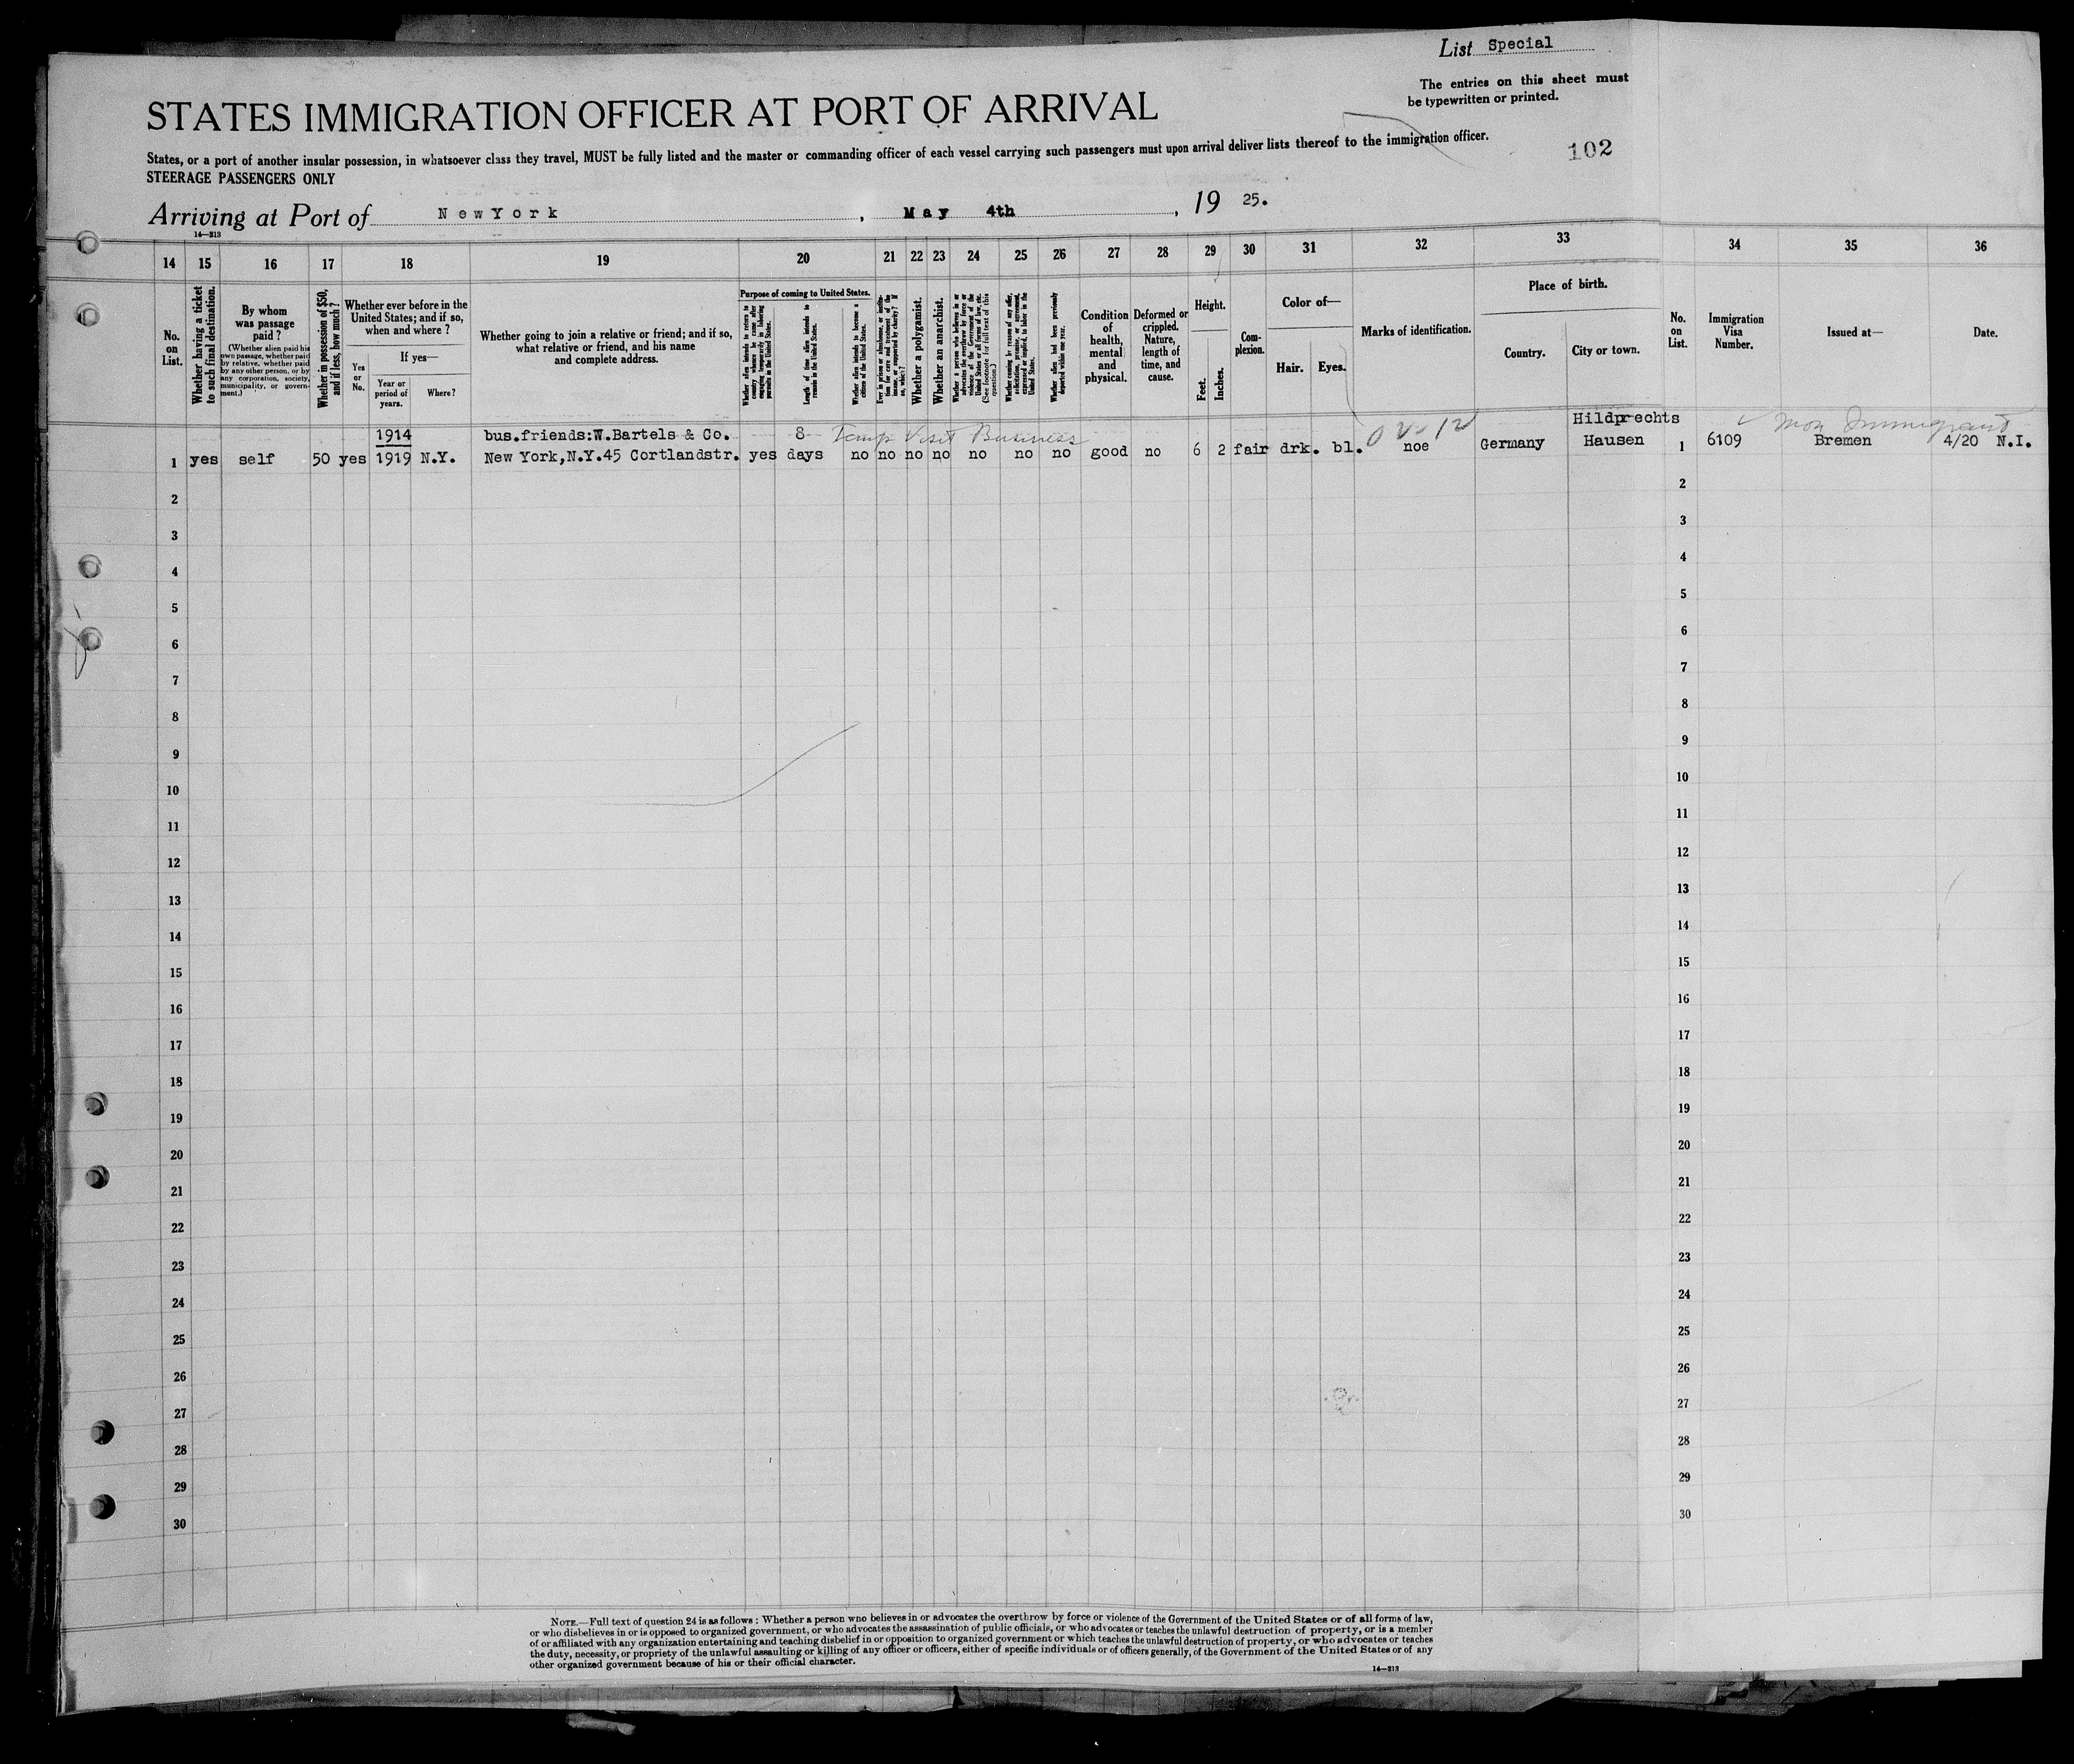 List Special
The entries on this sheet must
be typewritten or printed.
STATES IMMIGRATION OFFICER AT PORT OF ARRIVAL
102
States, or a port of another insular possession, in whatsoever class they travel, MUST be fully listed and the master or commanding officer of each vessel carrying such passengers must upon arrival deliver lists thereof to the immigration officer.
STEERAGE PASSENGERS ONLY
Arriving at Port of NewYork, May 4th, 19 25.
14—213
14 15 16 17 18 19 20 21 22 23 24 25 26 27 28 29 30 31 32 33 34 35 36
No. on List.
Whether having a ticket to such final destination.
By whom was passage paid?
(Whether alien paid his own passage, whether paid by relative, whether paid by any other person, or by any corporation, society, municipality, or government.)
Whether in possession of $50, and if less, how much?
Whether ever before in the United States; and if so, when and where?
Yes or No.
If yes—
Year or period of years.
Where?
Whether going to join a relative or friend; and if so, what relative or friend, and his name and complete address.
Purpose of coming to United States.
Whether alien intends to return to country whence he came after engaging temporarily in laboring pursuits in the United States.
Length of time alien intends to remain in the United States.
Whether alien intends to become a citizen of the United States.
Ever in prison or almshouse, or institution for care and treatment of the insane, or supported by charity? If so, which?
Whether a polygamist.
Whether an anarchist.
Whether a person who believes in or advocates the overthrow by force or violence of the Government of the United States or all forms of law, etc. (See footnote for full text of this question.)
Whether coming by reason of any offer, solicitation, promise, or agreement, expressed or implied, to labor in the United States.
Whether alien had been previously deported within one year.
Condition of health, mental and physical.
Deformed or crippled. Nature, length of time, and cause.
Height.
Feet. Inches.
Complexion.
Color of—
Hair. Eyes.
Marks of identification.
Place of birth.
Country. City or town.
No. on List.
Immigration Visa Number.
Issued at—
Date.
1914 bus.friends:W.Bartels & Co. 8 Temp Visit Business Hildprechts Non Immigrant
1 yes self 50 yes 1919 N.Y. New York,N.Y.45 Cortlandstr. yes days no no no no no no no good no 6 2 fair drk. bl. noe Germany Hausen 1 6109 Bremen 4/20 N.I.
2 2
3 3
4 4
5 5
6 6
7 7
8 8
9 9
10 10
11 11
12 12
13 13
14 14
15 15
16 16
17 17
18 18
19 19
20 20
21 21
22 22
23 23
24 24
25 25
26 26
27 27
28 28
29 29
30 30
NOTE.—Full text of question 24 is as follows: Whether a person who believes in or advocates the overthrow by force or violence of the Government of the United States or of all forms of law,
or who disbelieves in or is opposed to organized government, or who advocates the assassination of public officials, or who advocates or teaches the unlawful destruction of property, or is a member
of or affiliated with any organization entertaining and teaching disbelief in or opposition to organized government or which teaches the unlawful destruction of property, or who advocates or teaches
the duty, necessity, or propriety of the unlawful assaulting or killing of any officer or officers, either of specific individuals or of officers generally, of the Government of the United States or of any
other organized government because of his or their official character.
14—213